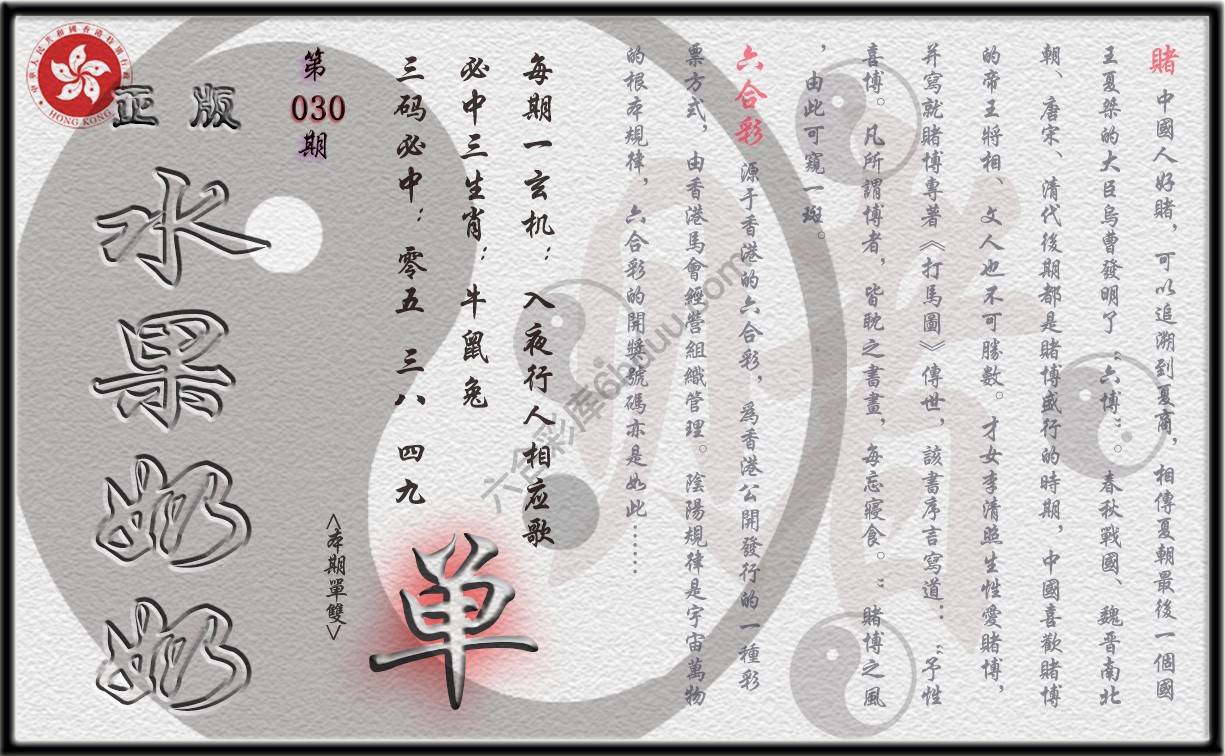 賭 中國人好賭，可以追溯到夏商，相傳夏朝最後一個國
王夏桀的大臣烏曹發明了“六博”。春秋戰國、魏晉南北
朝、唐宋、清代後期都是賭博盛行的時期，中國喜歡賭博
的帝王將相、文人也不可勝數。才女李清照生性愛賭博，
并寫就賭博專著《打馬圖》傳世，該書序言寫道：“予性
喜博。凡所謂博者，皆耽之書畫，每忘寢食。”賭博之風
，由此可窺一斑。
六合彩 源于香港的六合彩，為香港公開發行的一種彩
票方式，由香港馬會經營組織管理。陰陽規律是宇宙萬物
的根本規律，六合彩的開獎號碼亦是如此……
每期一玄机：入夜行人相应歌
必中三生肖：牛鼠兔
三码必中：零五 三八 四九
单
<本期單雙>
第
030
期
正版
水果奶奶
中華人民共和國香港特別行政區
HONG KONG
六合彩库6hduu.com